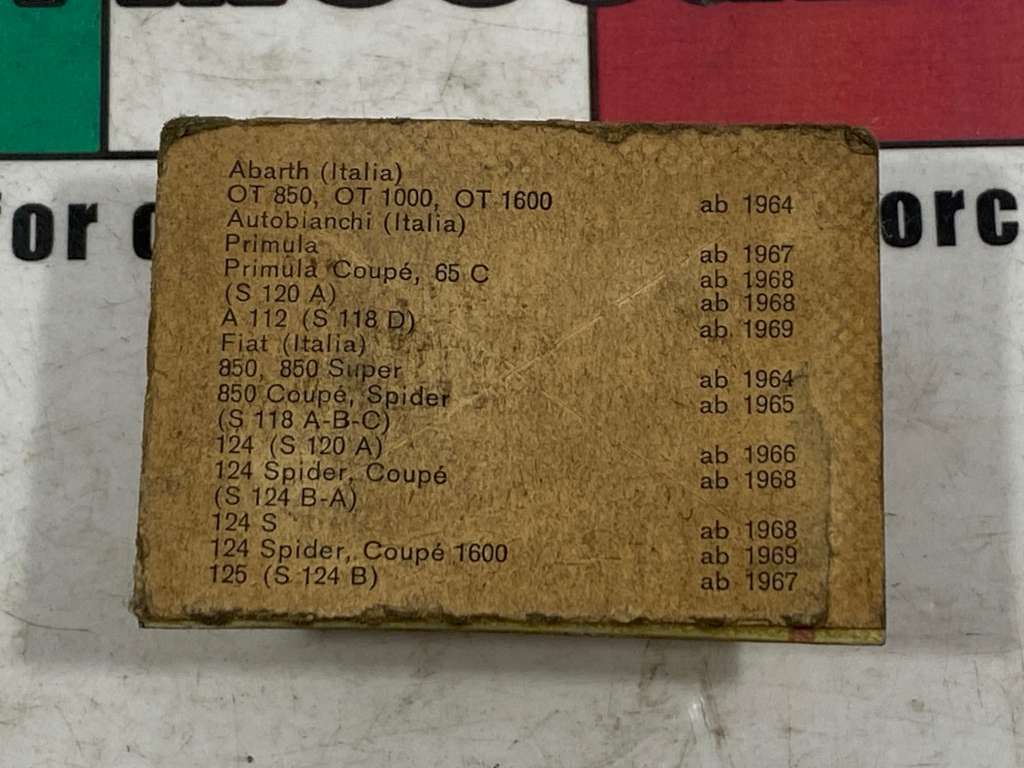 for
orc
Abarth (Italia)
OT 850, OT 1000, OT 1600 ab 1964
Autobianchi (Italia)
Primula ab 1967
Primula Coupé, 65 C ab 1968
(S 120 A) ab 1968
A 112 (S 118 D) ab 1969
Fiat (Italia)
850, 850 Super ab 1964
850 Coupé, Spider ab 1965
(S 118 A-B-C)
124 (S 120 A) ab 1966
124 Spider, Coupé ab 1968
(S 124 B-A)
124 S ab 1968
124 Spider, Coupé 1600 ab 1969
125 (S 124 B) ab 1967